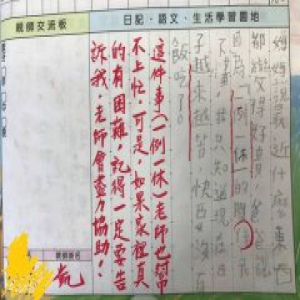 親師交流板
日記‧語文‧生活學習園地
媽媽說我近什麼東西
都變得好貴，爸爸說
因為「一例一休」的關係
子越來越苦，快要沒有
飯吃了。
這件事(一例一休)老師也幫
不上忙，可是，如果家裡真
的有困難，記得一定要告
訴我，老師會盡力協助！